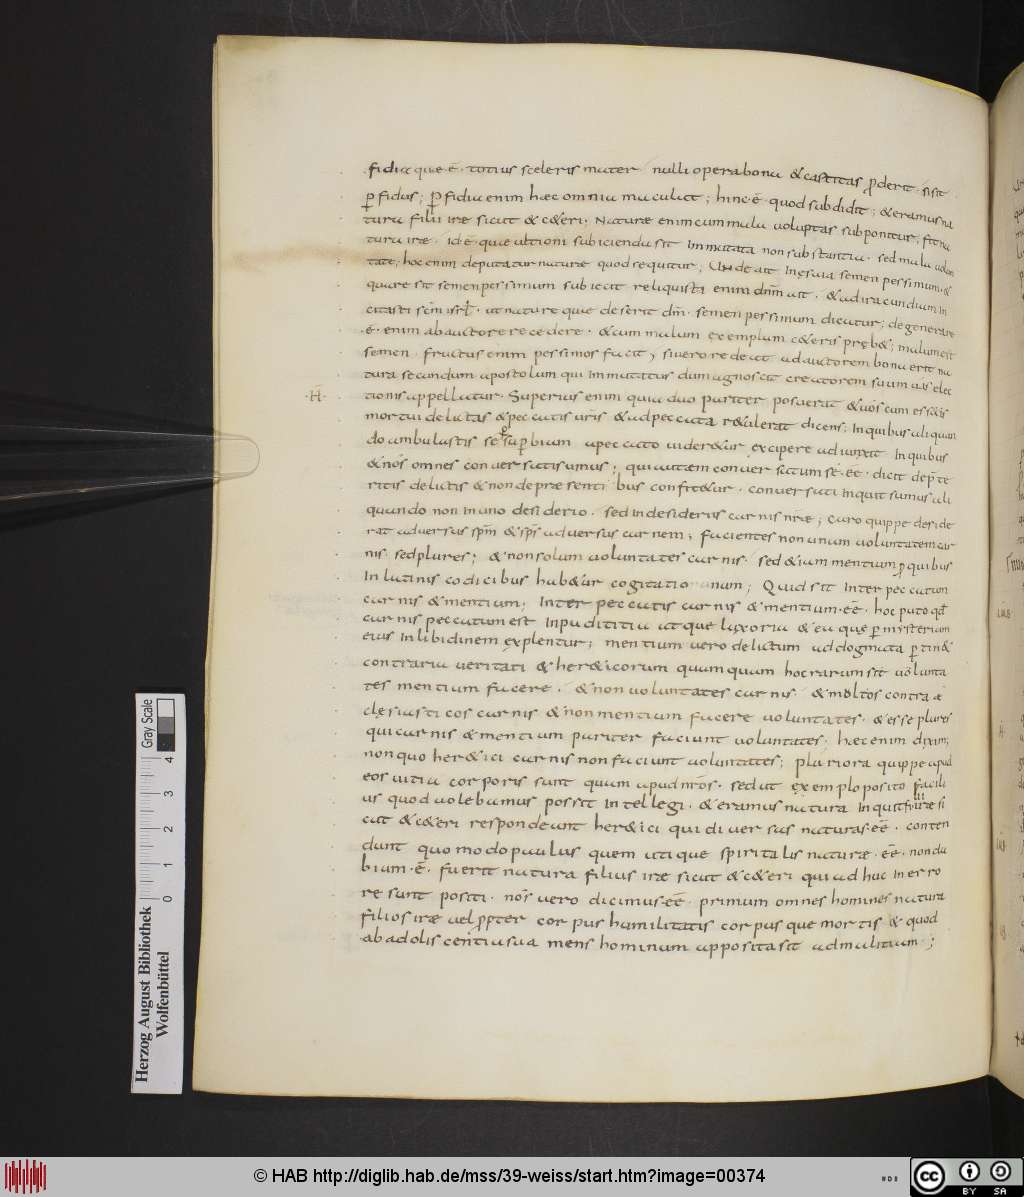 fidia que ē· totius sceleris mater nulli opera bona & castitas ꝓderit · si sit
ꝑfidus; ꝑfidia enim hæc omnia maculat; hinc ē· quod subdidit; & eramus na
tura filii iræ sicut & c&eri· Naturæ enim cum mala uoluptas subponitur;
tura iræ· id ē· quæ ultioni subicienda sit Inmutata non substantia · sed mala uolun
tate; hoc enim deputatur naturæ quod sequitur; Unde ait In esaia semen pessimum· &
quare sit semen pessimum subiecit reliquisti enim dnm̄ ait · & ad iracundiam In
citasti scm̄ isrl̄· ut naturæ quæ deserit dm̄· semen pessimum dicatur; degenerare
·ē· enim ab auctore recedere · & cum malum exemplum c&eris preb&; malum est
semen · fructus enim pessimos facit, si uero redeat ad auctorem bona erit na
tura secundum apostolum qui Inmutatus dum agnoscit creatorem suum uas elec
·H̄· tionis appellatur· Superius enim quia duo pariter posuerat & uos cum ess&is
mortui delictis & peccatis uris̄ & ad peccata r&ulerat dicens; In quibus aliquan
do ambulastis se suꝑbiam a peccato uider&ur excipere adiunxit In quibus
& nos̄ omnes conuersati sumus; qui autem conuersatum se· ēē· dicit dep̄te
ritis delictis & non de præsentibus confit&ur· conuersati Inquit sumus ali
quando non In uno desiderio· sed In desideriis carnis nr̄æ; caro quippe deside
rat aduersus spm̄ & sps̄ aduersus carnem; facientes non unam uoluntatem car
nis· sed plures; & non solum uoluntates carnis· sed &iam mentium ꝑ quibus
In latinis codicibus hab&ur cogitationum; Quid sit Inter peccatum
carnis & mentium; Inter peccatis carnis & mentium· ēē· hoc puto qd̄
carnis peccatum est Inpudititia atque luxoria & ea quę ꝑ mysterium
eius In libidinem explentur; mentium uero delictum ad dogmata ꝑtin&
contraria ueritati & her&icorum quamquam hocrarum sit uolunta
tes mentium facere · & non uoluntates carnis · & moltos contra æ
clesiasticos carnis & non mentium facere uoluntates· & esse plures
qui carnis & mentium pariter faciunt uoluntates· hæc enim diximus;
non quo her&ici carnis non faciunt uoluntates; plariora quippe apud
eos uitia corporis sunt quam apud nros̄· sed ut exemplo posito facili
us quod uolebamus possit Intellegi· & eramus natura Inquit filii iræ si
cut & c&eri respondeunt her&ici qui diuersas naturas· ēē· conten
dunt quomodo paulus quem utique spiritalis naturæ· ēē· non du
bium· ē· fuerit natura filius iræ sicut & c&eri qui adhuc In erro
re sunt positi· nos̄ uero dicimus· ēē· primum omnes homines natura
filios iræ uel ꝓpter corpus humilitatis corpus que mortis & quod
ab adoliscentiusua mens hominum apposita sit ad malitium·;
Herzog August Bibliothek
Wolfenbüttel
0 1 2 3 4
Gray Scale
© HAB http://diglib.hab.de/mss/39-weiss/start.htm?image=00374
cc BY SA